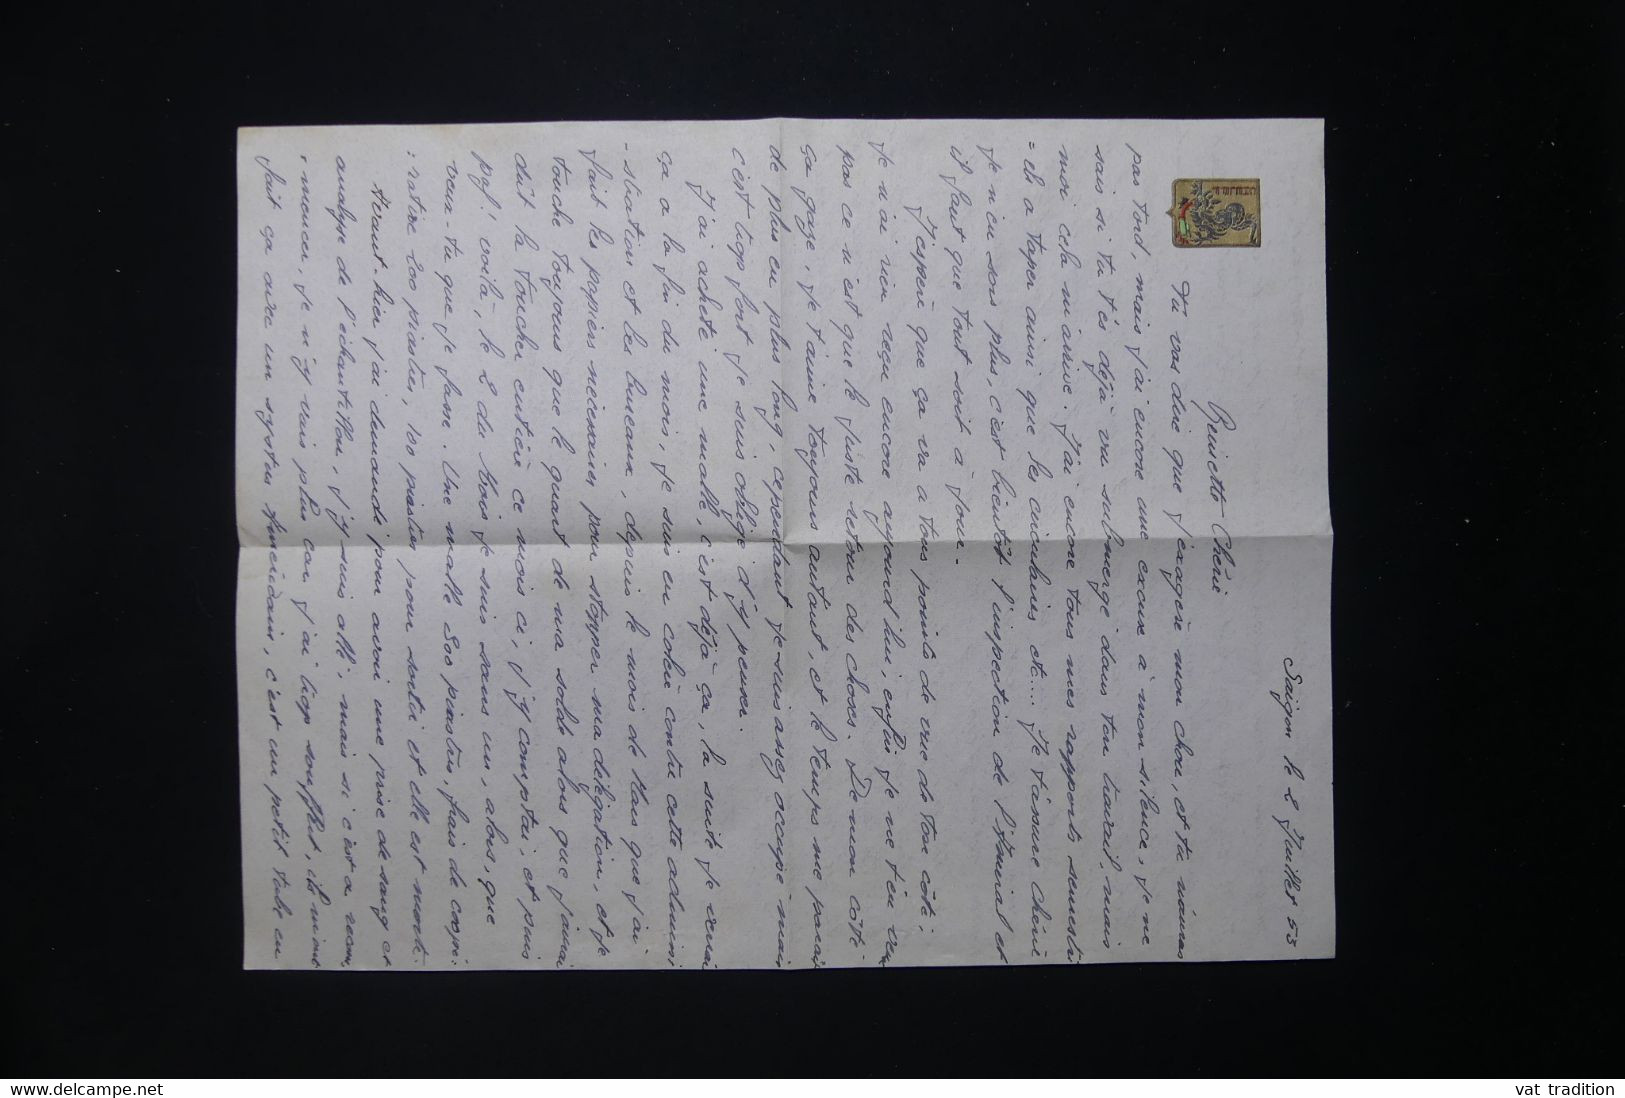 Saigon le 2 Juillet 53
Ginette Chérie
Tu vas dire que j'exagère mon chou, et tu n'aurais
pas tord, mais j'ai encore une excuse à mon silence, je ne
sais si tu t'és déjà vu submergé dans ton travail, mais
moi cela m'arrive. J'ai encore tous mes rapports semestri
= els a taper ainsi que les circulaires etc... Je t'assure Chérie
je n'en sors plus, c'est bientôt l'inspection de l'Amiral et
il faut que tout soit à jour.
J'espère que ça va a tous points de vue de ton côté,
Je n'ai rien reçu encore aujourd'hui, enfin je ne t'en veu
pas ce n'est que le juste retour des choses. De mon côté
ça gaze, je t'aime toujours autant, et le temps me parait
de plus en plus long, cependant je suis assez occupé mais
c'est trop fort je suis obligé d'y penser.
J'ai acheté une malle, c'est déjà ça, la suite je verrai
ça a la fin du mois, je suis en colère contre cette admini
- stration et les bureaux, depuis le mois de Mars que j'ai
fait les papiers nécessaires pour stopper ma délégation, et je
touche toujours que le quart de ma solde alors que j'aurai
dût la toucher entière ce mois ci, j'y comptai, et puis
pof! voilà, le 2 du Mois je suis sans un, alors, que
veux-tu que je fasse. Une malle 800 piastres, frais de copie:
: ratine 200 piastres, 100 piastres pour sortir et elle est morte.
Avant-hier j'ai demandé pour avoir une prise de sang et
analyse de l'échantillon, j'y suis allé, mais si c'est a recom
: mencer, je n'y vais plus car j'ai trop souffert, ils m'ont
fait ça avec un système Américain, c'est un petit tube en
vat tradition
delcampe.net